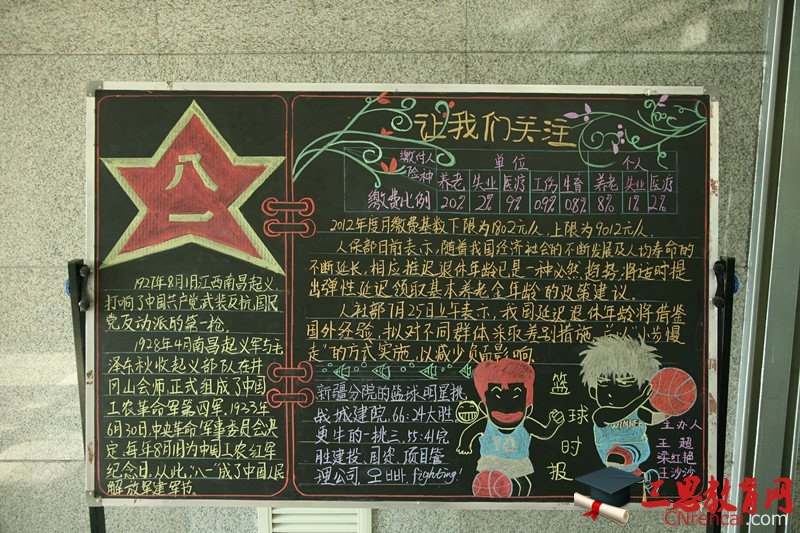 八一
1927年8月1日江西南昌起义
打响了中国共产党武装反抗国民
党反动派的第一枪。
1928年4月南昌起义军与毛
泽东秋收起义部队在井
冈山会师,正式组成了中国
工农革命军第四军,1933年
6月30日,中央革命军事委员会决
定,每年8月1日为中国工农红军
纪念日,从此,"八一"成了中国人民
解放军建军节。
让我们关注
缴付人 单位 个人
险种 养老 失业 医疗 工伤 生育 养老 失业 医疗
缴费比例 20% 2% 9% 09% 08% 8% 1% 2%
2012年度月缴费基数下限为1802元/人,上限为9012元/人
人保部日前表示,随着我国经济社会的不断发展及人均寿命的
不断延长,相应推迟退休年龄已是一种必然趋势,将适时提
出弹性延迟领取基本养老金年龄的政策建议。
人社部7月25日上午表示,我国延迟退休年龄将借鉴
国外经验,拟对不同群体采取差别措施,并以"小步慢
走"的方式实施,以减少负面影响.
新疆分院的篮球明星挑
战城建院,66:24大胜
更牛的一挑三,55:41完
胜建投、国资、项目管
理公司, 오빠 fighting!
篮球时报
10
WINNER
主办人
王超
梁红艳
王沙沙
三思教育网
CNrencai.com